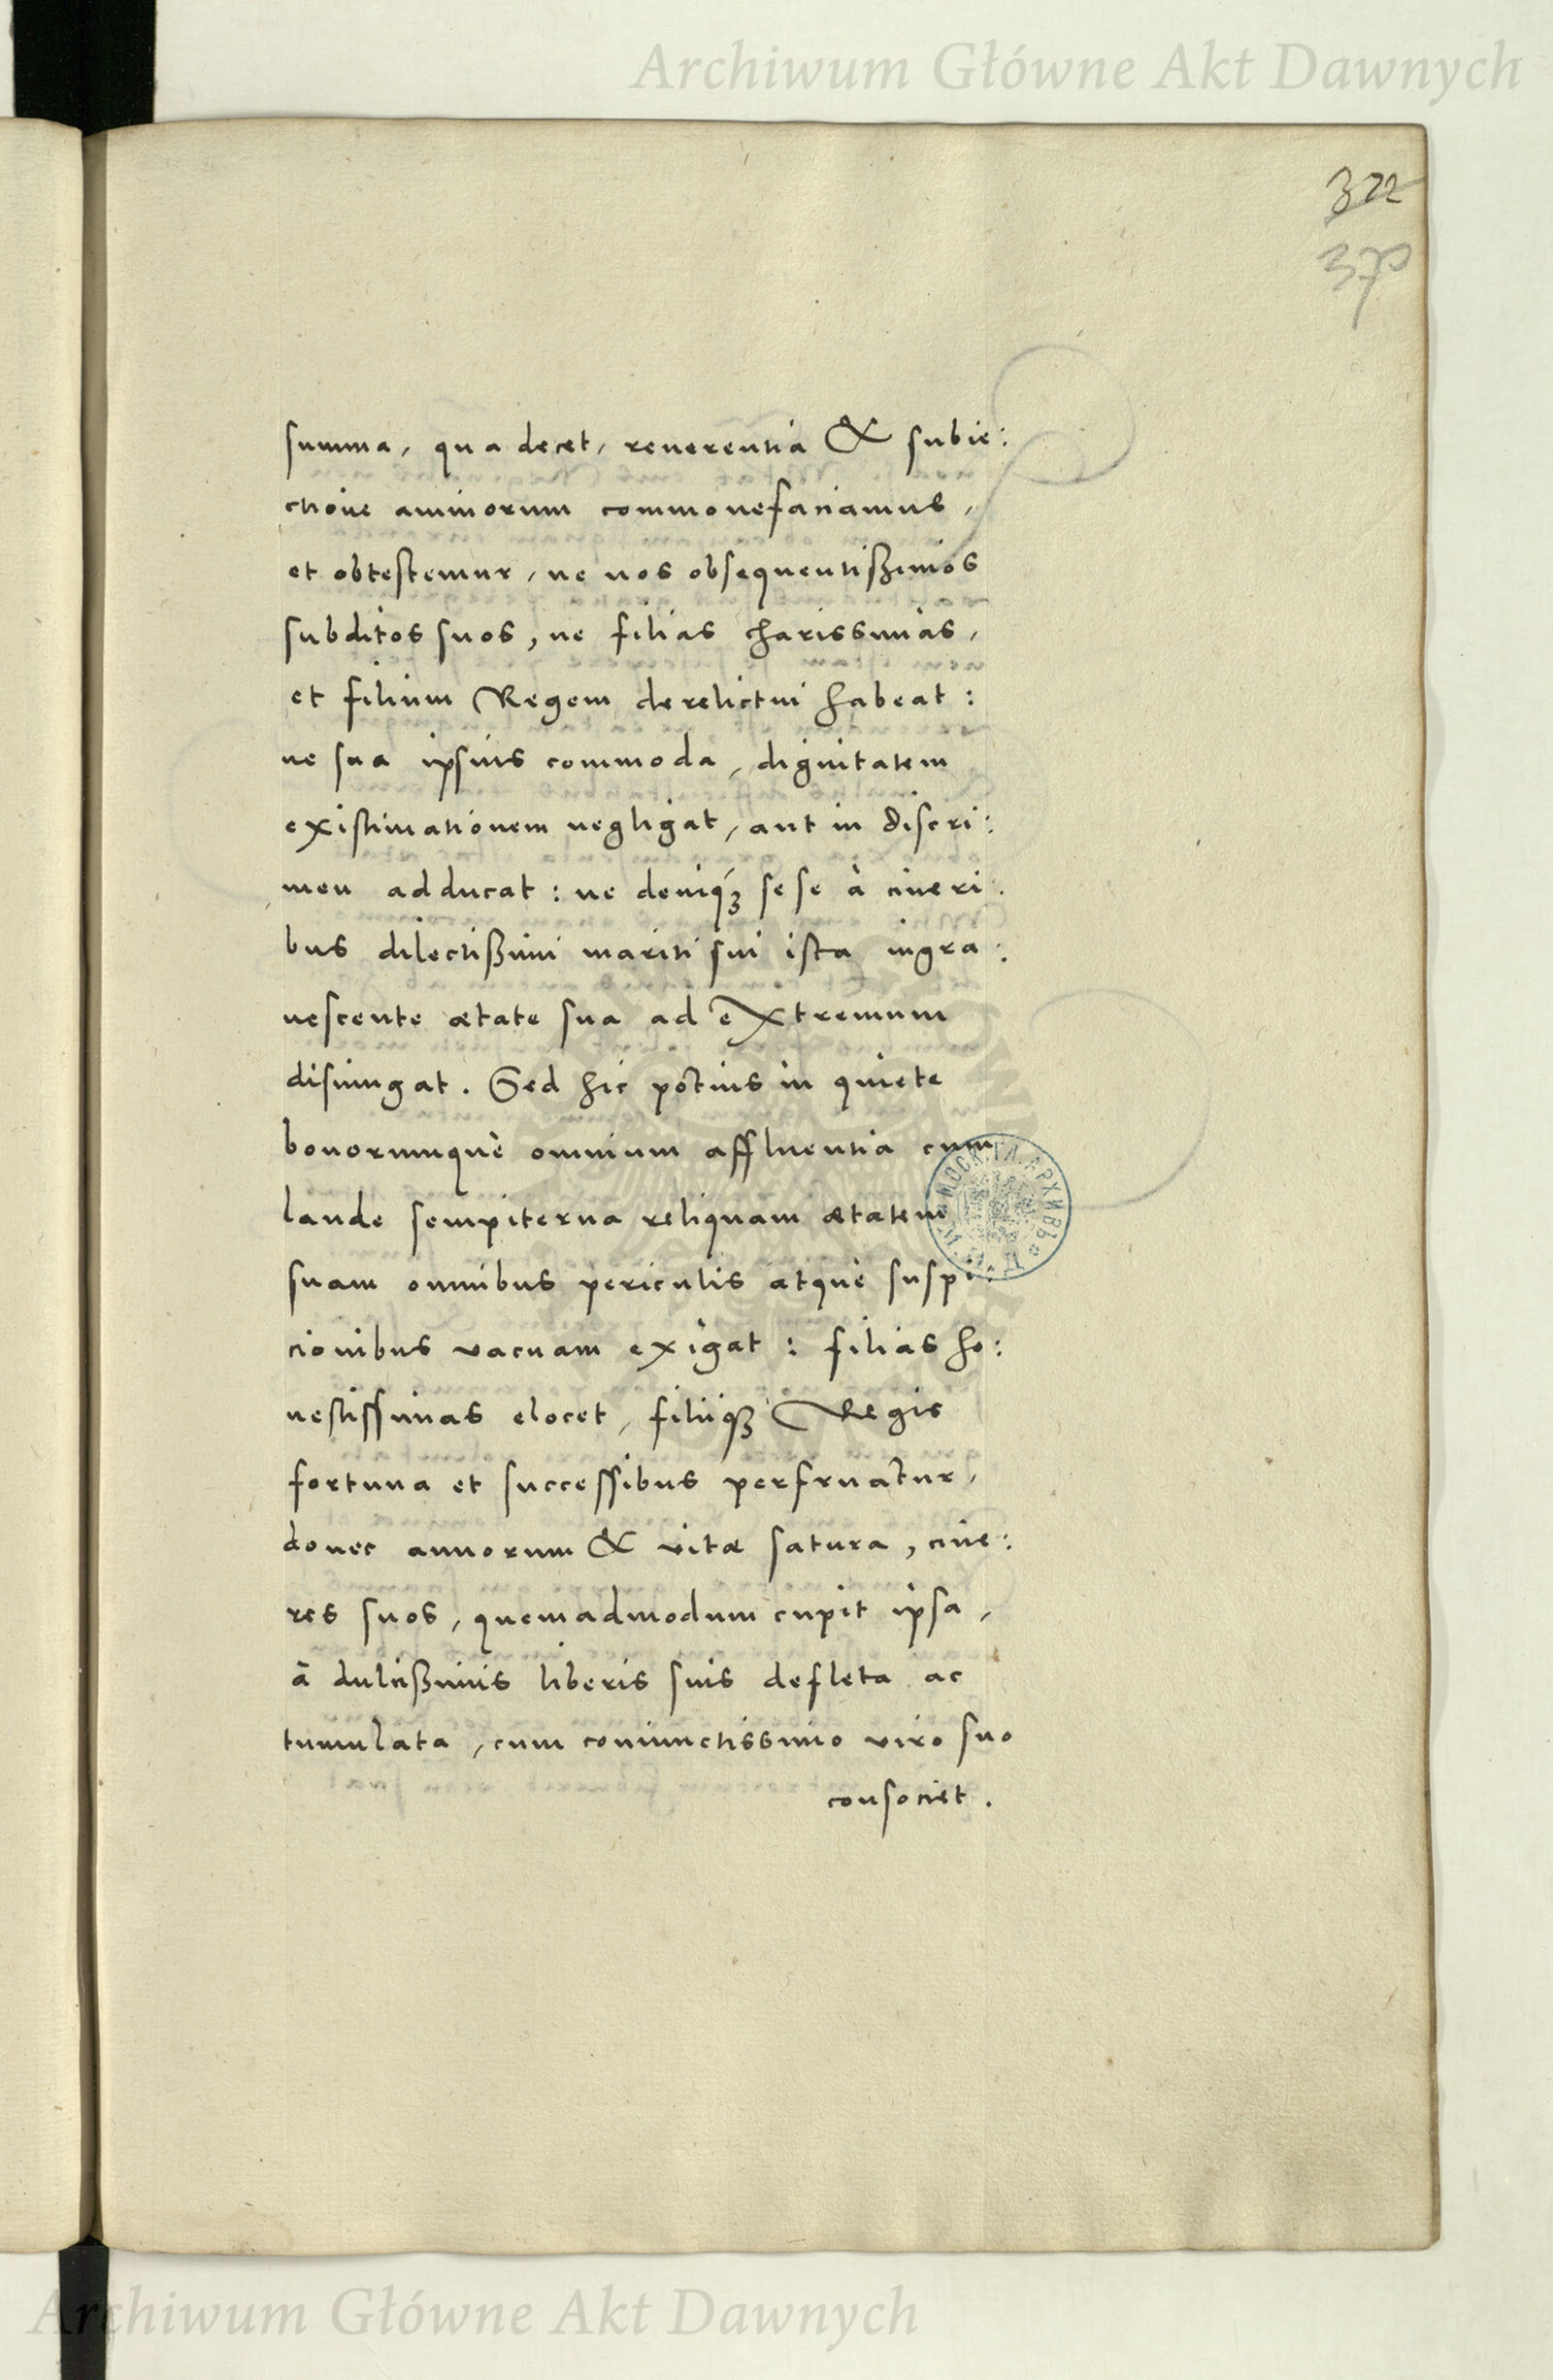 Archiwum Główne Akt Dawnych
322
370
summa, qua decet, reuerentia & subie:
ctione animorum commonefaciamus,
et obtestemur, ne nos obsequentißimos
subditos suos, ne filias charissimas,
et filium Regem derelictui habeat:
ne sua ipsius commoda, dignitatem
existimationem negligat, aut in discri:
men adducat: ne deniqꝫ sese à cineri:
bus dilectißimi mariti sui ista ingra:
uescente ætate sua ad extremum
disiungat. Sed hic potius in quiete
bonorumquè omnium affluentia cum
laude sempiterna reliquam ætatem
suam omnibus periculis atquè suspi:
cionibus vacuam exigat: filias ho:
nestissimas elocet, filiiqꝫ Regis
fortuna et successibus perfruatur,
donec annorum & vitæ satura, cine:
res suos, quemadmodum cupit ipsa,
à dulcißimis liberis suis defleta ac
tumulata, cum coniunctissimo viro suo
consociet.
Archiwum Główne Akt Dawnych